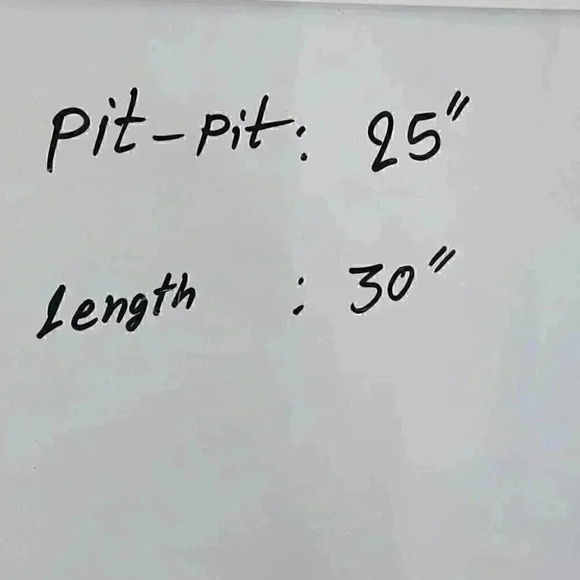 Pit-Pit: 25"
Length : 30"